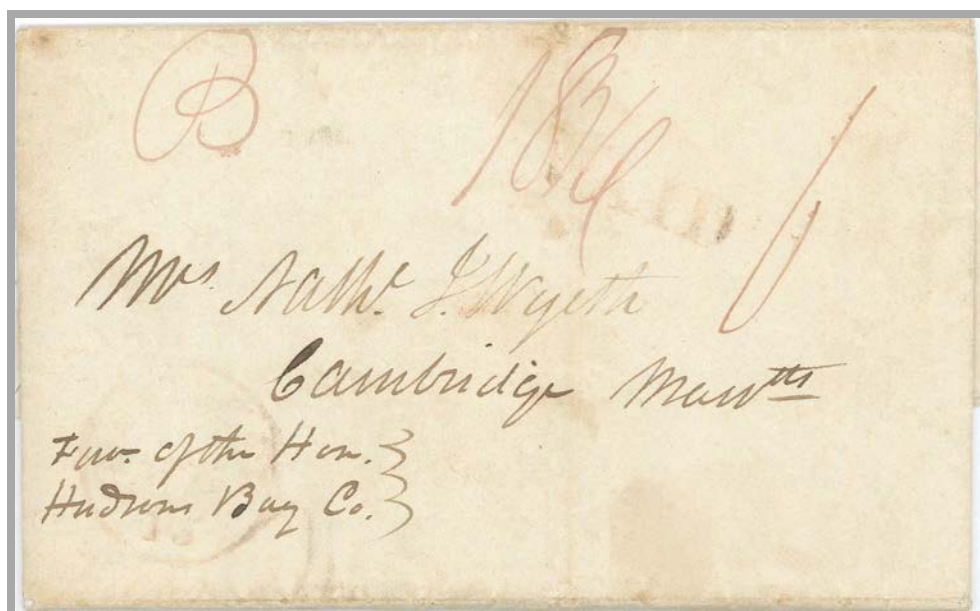 B 18¾
Mrs. Nathl. J. Wyeth
Cambridge Masstts
Fav. of the Hon.
Hudsons Bay Co.